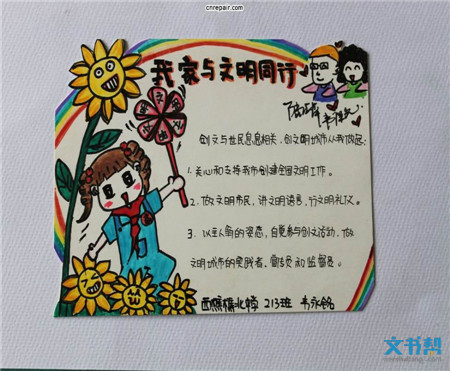 cnrepair.com
我家与文明同行
创文与世民息息相关，创文明城市从我做起：
1. 关心和支持我市创建全国文明工作。
2. 做文明市民，讲文明语言，行文明礼仪。
3. 以主人翁的姿态，自觉参与创文活动，做
文明城市的实践者、宣传员和监督员。
213班
文书帮